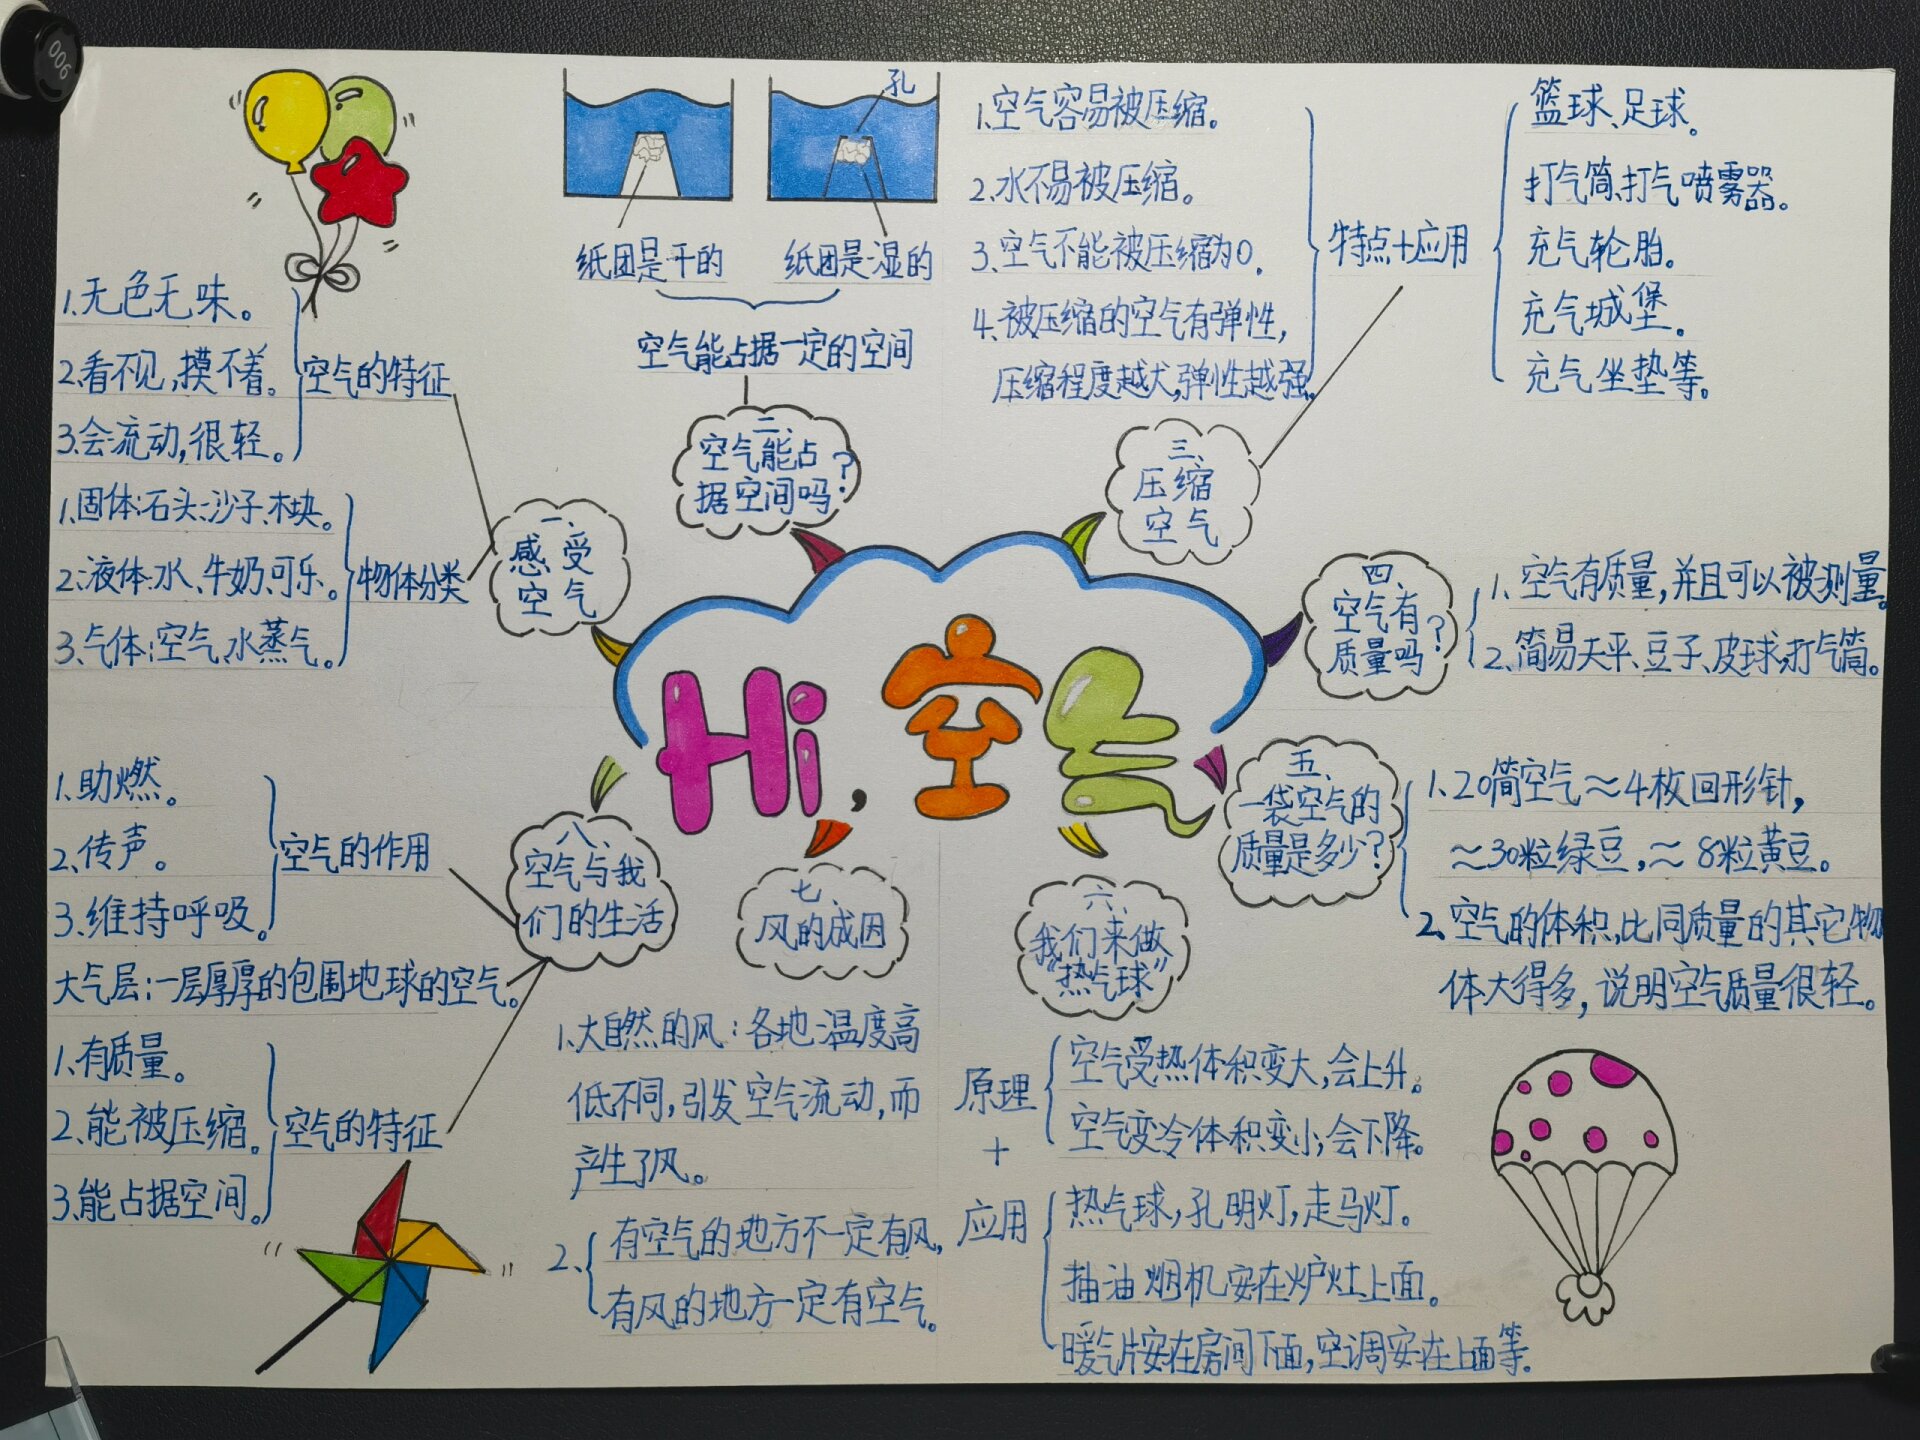 006
Hi, 空气
一、
感受
空气
空气的特征
1.无色无味。
2.看不见,摸不着。
3.会流动,很轻。
物体分类
1.固体:石头、沙子、木块。
2.液体:水、牛奶、可乐。
3.气体:空气、水蒸气。
二、
空气能占
据空间吗?
空气能占据一定的空间
孔
纸团是干的
纸团是湿的
三、
压缩
空气
特点+应用
1.空气容易被压缩。
2.水不易被压缩。
3.空气不能被压缩为0.
4.被压缩的空气有弹性,
压缩程度越大,弹性越强。
篮球、足球。
打气筒、打气喷雾器。
充气轮胎。
充气城堡。
充气坐垫等。
四、
空气有
质量吗?
1.空气有质量,并且可以被测量。
2.简易天平、豆子、皮球,打气筒。
五、
一袋空气的
质量是多少?
1.20筒空气≈4枚回形针,
≈30粒绿豆,≈8粒黄豆。
2.空气的体积,比同质量的其它物
体大得多,说明空气质量很轻。
六、
我们来做
“热气球”
原理
空气受热体积变大,会上升。
空气变冷体积变小,会下降。
+
应用
热气球,孔明灯,走马灯。
抽油烟机安在炉灶上面。
暖气片安在房间下面,空调安在上面等.
七、
风的成因
1.大自然的风:各地温度高
低不同,引发空气流动,而
产生了风。
2.
有空气的地方不一定有风,
有风的地方一定有空气。
八、
空气与我
们的生活
空气的作用
1.助燃。
2.传声。
3.维持呼吸。
大气层:一层厚厚的包围地球的空气。
空气的特征
1.有质量。
2.能被压缩。
3.能占据空间。